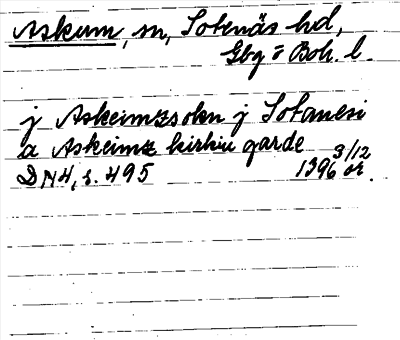 Askum, sn, Sotenäs hd,
Gbg o Boh. l.
j Askeimzsokn j Sotanesi
a Askeimz kirkiu garde
DN 4, s. 495 1396 3/12 or.